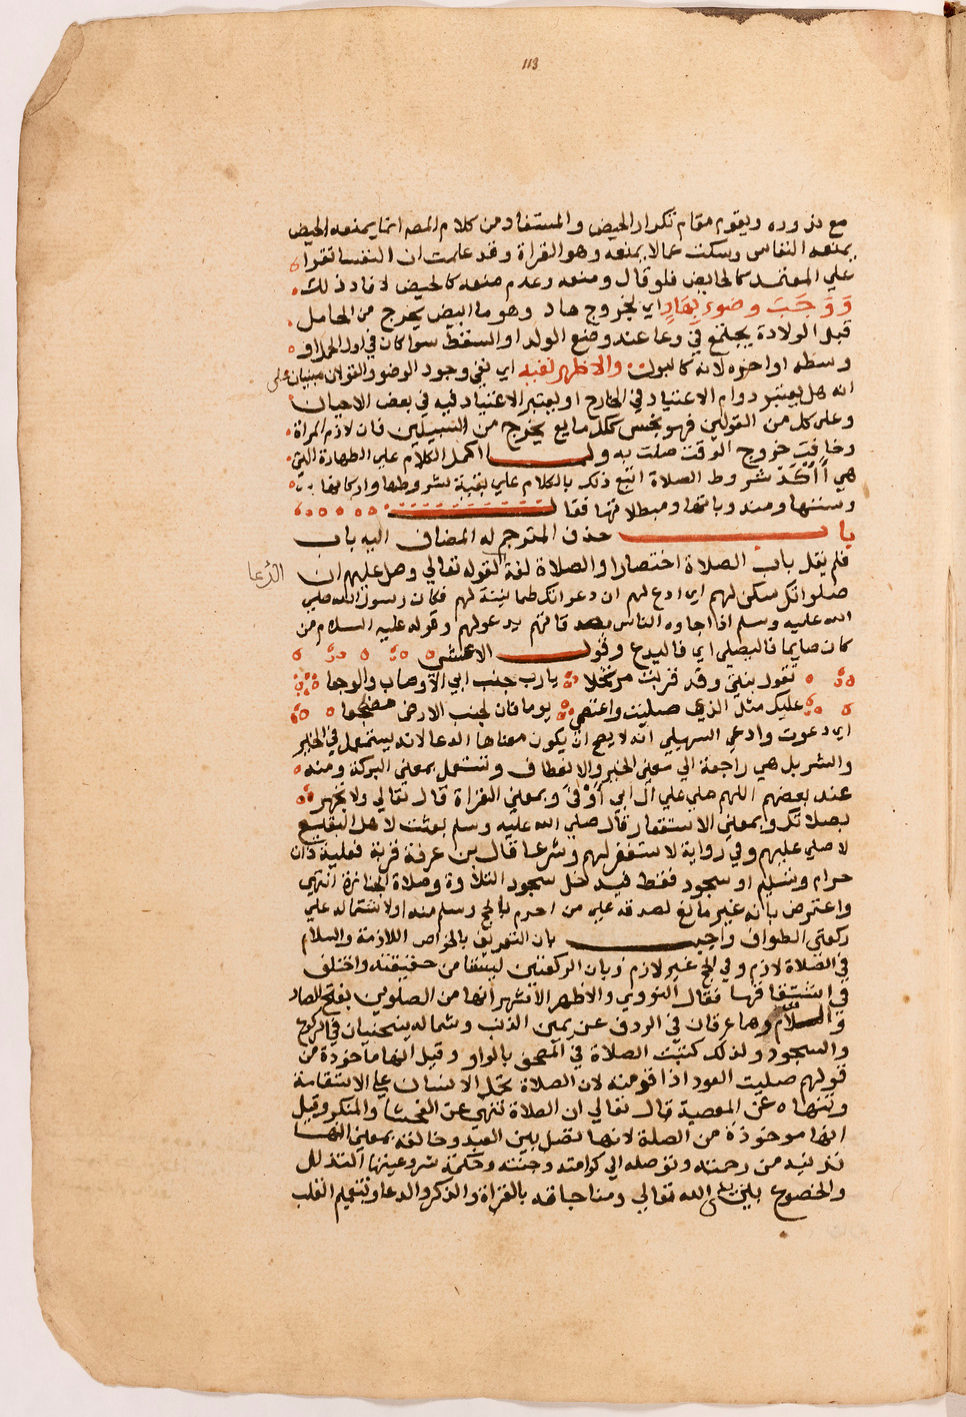 113
مع ندوره ويقوم مقام تكرار الحيض والمستفاد من كلام المصر انما يمنعه الحيض
يمنعه النفاس وسكت عما لا يمنعه وهو القراة وقد علمت ان النفسا تقرا
علي المعتمد كالحايض فلو قال ومنعه وعدم منعه كالحيض لافاد ذلك
وَوَجَبَ وضوء بِهَادٍ اي بخروج هاد وهو ما ابيض يخرج من الحامل
قبل الولادة يجتمع في وعا عند وضع الولد او السقط سوا كان في اول الحمل او
وسطه او اخره لانه كالبول والاظهر نفيه اي نفي وجود الوضو والقولان مبنيان على
انه هل يعتبر دوام الاعتياد في الخارج او يعتبر الاعتياد فيه في بعض الاحيان
وعلى كل من القولين فهو نجس ككل مايع يخرج من السبيلين فان لازم المراة
وخافت خروج الوقت صلت به ولما اكمل الكلام علي الطهارة التي
هي أأكد شروط الصلاة اتبع ذلك بالكلام علي بقية شروطها واركانها
وسننها ومندوباتها ومبطلاتها فقال
باب حذف المترجم له المضاف اليه باب
فلم يقل باب الصلاة اختصارا والصلاة لغة لقوله تعالي وصل عليهم ان
الدعا
صلواتك سكن لهم اي ادع لهم ان دعواتك طمانينة لهم فكان رسول الله صلي
الله عليه وسلم اذا جاوه الناس بصدقاتهم يدعو لهم وقوله عليه السلام من
كان صايما فاليصلي اي فاليدع وقول الاعشى
تقول بنتي وقد قربت مرتحلا يارب جنب ابي الاوصاب والوجعا
عليك مثل الذي صليت واغتمضي يوما فان لجنب الارض مضطجعا
اي دعوت وادعي السهيلي انه لا يصح ان يكون معناها الدعا لانه يستعمل في الخير
والشر بل هي راجعة الي معني الحنو والانعطاف وتستعمل بمعني البركة ومنه
عند بعضهم اللهم صلي علي ال ابي أوفى وبمعني القراة قال تعالي ولا تجهر
بصلاتك وبمعني الاستغفار قال صلي الله عليه وسلم بعثت لاهل البقيع
لاصلي عليهم وفي رواية لاستغفر لهم وشرعا قال بن عرفة قربة فعلية ذات
حرام وتسليم او سجود فقط فيدخل سجود التلاوة وصلاة الجنازة انتهي
واعترض بانه غير مانع لصدقه علي من احرم بالحج وسلم منه اولا شتماله علي
ركعتي الطواف واجيب بان التعريف بالخواص اللازمة والسلام
في الصلاة لازم وفي الحج غير لازم وبان الركعتين ليستا من حقيقته واختلف
في اشتقاقها فقال النووي والاظهر الاشهر انها من الصلوين بفتح الصاد
والسلام وهما عرقان في الردف عن يمين الذنب وشماله ينحنيان في الركوع
والسجود ولذلك كتبت الصلاة في المصحف بالواو وقيل انها ماخوذة من
قولهم صليت العود اذا قومته لان الصلاة تحمل الانسان علي الاستقامة
وتنهاه عن المعصية قال تعالي ان الصلاة تنهى عن الفحشا والمنكر وقيل
انها موخوذة من الصلة لانها تصل بين العبد وخالقه بمعني انها
تدنيه من رحمته وتوصله الي كرامته وجنته وحكمة شروعيتها التذلل
والخضوع بين يدي الله تعالي ومناجاته بالقراة والذكر والدعا وتنعيم القلب